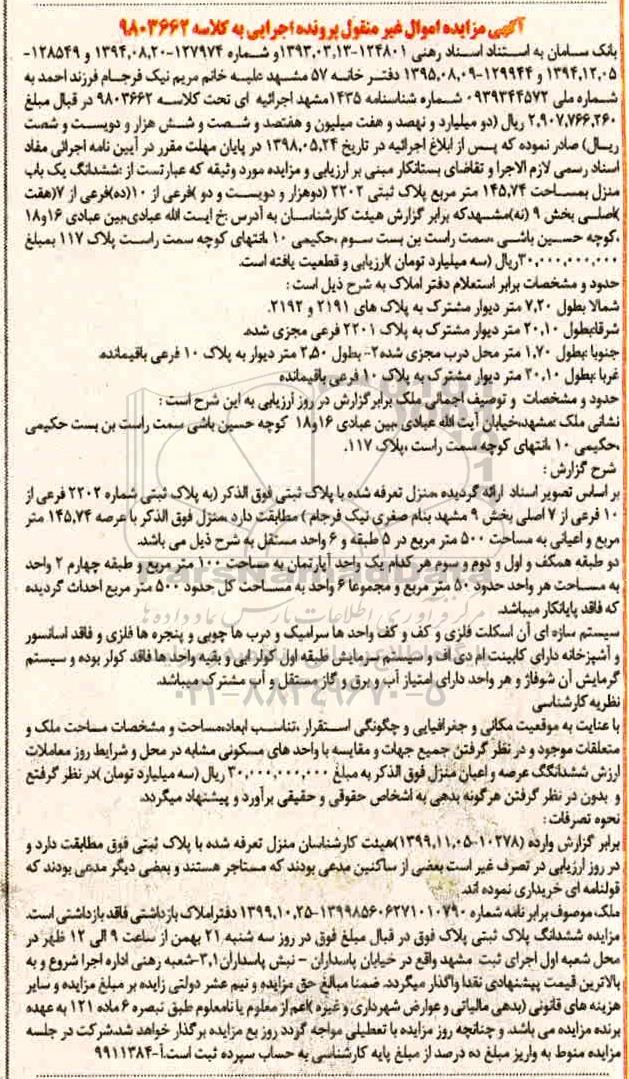 آگهی مزایده اموال غیر منقول پرونده اجرایی به کلاسه ۹۸۰۳۶۶۲
بانک سامان به استناد اسناد رهنی ۱۲۴۸۰۱-۱۳۹۳,۰۳,۱۳و شماره ۱۲۷۹۷۴-۱۳۹۴,۰۸,۲۰ و ۱۲۸۵۴۹-
۱۳۹۴,۱۲,۰۵ و ۱۲۹۹۴۴-۱۳۹۵,۰۸,۰۹ دفتر خانه ۵۷ مشهد علیه خانم مریم نیک فرجام فرزند احمد به
شماره ملی ۰۹۳۹۳۴۴۵۷۲ شماره شناسنامه ۱۴۳۵مشهد اجرائیه ای تحت کلاسه ۹۸۰۳۶۶۲ در قبال مبلغ
۲,۹۰۷,۷۶۶,۲۶۰ ریال (دو میلیارد و نهصد و هفت میلیون و هفتصد و شصت و شش هزار و دویست و شصت
ریال) صادر نموده که پس از ابلاغ اجرائیه در تاریخ ۱۳۹۸,۰۵,۲۴ در پایان مهلت مقرر در آیین نامه اجرائی مفاد
اسناد رسمی لازم الاجرا و تقاضای بستانکار مبنی بر ارزیابی و مزایده مورد وثیقه که عبارتست از :ششدانگ یک باب
منزل بمساحت ۱۴۵,۷۴ متر مربع پلاک ثبتی ۲۲۰۲ (دوهزار و دویست و دو )فرعی از ۱۰(ده)فرعی از ۷(هفت
)اصلی بخش ۹ (نه)مشهدکه برابر گزارش هیئت کارشناسان به آدرس :خ ایت الله عبادی،بین عبادی ۱۶و۱۸
،کوچه حسین باشی ،سمت راست بن بست سوم ،حکیمی ۱۰ ،انتهای کوچه سمت راست پلاک ۱۱۷ بمبلغ
۳۰,۰۰۰,۰۰۰,۰۰۰ریال (سه میلیارد تومان )ارزیابی و قطعیت یافته است.
حدود و مشخصات برابر استعلام دفتر املاک به شرح ذیل است :
شمالا بطول ۷,۲۰ متر دیوار مشترک به پلاک های ۲۱۹۱ و ۲۱۹۲.
شرقا:بطول ۲۰,۱۰ متر دیوار مشترک به پلاک ۲۲۰۱ فرعی مجزی شده.
جنوبا :بطول ۱,۷۰ متر محل درب مجزی شده۲- بطول ۲,۵۰ متر دیوار به پلاک ۱۰ فرعی باقیمانده.
غربا :بطول ۲۰,۱۰ متر دیوار مشترک به پلاک ۱۰ فرعی باقیمانده
حدود و مشخصات و توصیف اجمالی ملک برابرگزارش در روز ارزیابی به این شرح است :
نشانی ملک :مشهد،خیابان آیت الله عبادی ،بین عبادی ۱۶و۱۸ کوچه حسین باشی سمت راست بن بست حکیمی
،حکیمی ۱۰ ،انتهای کوچه سمت راست ،پلاک ۱۱۷.
شرح گزارش :
بر اساس تصویر اسناد ارائه گردیده ،منزل تعرفه شده با پلاک ثبتی فوق الذکر (به پلاک ثبتی شماره ۲۲۰۲ فرعی از
۱۰ فرعی از ۷ اصلی بخش ۹ مشهد بنام صغری نیک فرجام ) مطابقت دارد ،منزل فوق الذکر با عرصه ۱۴۵,۷۴ متر
مربع و اعیانی به مساحت ۵۰۰ متر مربع در ۵ طبقه و ۶ واحد مستقل به شرح ذیل می باشد.
دو طبقه همکف و اول و دوم و سوم هر کدام یک واحد آپارتمان به مساحت ۱۰۰ متر مربع و طبقه چهارم ۲ واحد
به مساحت هر واحد حدود ۵۰ متر مربع و مجموعا ۶ واحد به مساحت کل حدود ۵۰۰ متر مربع احداث گردیده
که فاقد پایانکار میباشد.
سیستم سازه ای آن اسکلت فلزی و کف و کف واحد ها سرامیک و درب ها چوبی و پنجره ها فلزی و فاقد اسانسور
و آشپزخانه دارای کابینت ام دی اف و سیستم سرمایش طبقه اول کولر ابی و بقیه واحد ها فاقد کولر بوده و سیستم
گرمایش آن شوفاژ و هر واحد دارای امتیاز آب و برق و گاز مستقل و آب مشترک میباشد.
نظریه کارشناسی
با عنایت به موقعیت مکانی و جغرافیایی و چگونگی استقرار ،تناسب ابعاد،مساحت و مشخصات مساحت ملک و
متعلقات موجود و در نظر گرفتن جمیع جهات و مقایسه با واحد های مسکونی مشابه در محل و شرایط روز معاملات
ارزش ششدانگ عرصه و اعیان منزل فوق الذکر به مبلغ ۳۰,۰۰۰,۰۰۰,۰۰۰ ریال (سه میلیارد تومان )در نظر گرفتع
و بدون در نظر گرفتن هرگونه بدهی به اشخاص حقوقی و حقیقی برآورد و پیشنهاد میگردد.
نحوه تصرفات :
برابر گزارش وارده (۱۰۲۷۸-۱۳۹۹,۱۱,۰۵)هیئت کارشناسان منزل تعرفه شده با پلاک ثبتی فوق مطابقت دارد و
در روز ارزیابی در تصرف غیر است بعضی از ساکنین مدعی بودند که مستاجر هستند و بعضی دیگر مدعی بودند که
قولنامه ای خریداری نموده اند.
ملک موصوف برابر نامه شماره ۱۳۹۹۸۵۶۰۶۲۷۱۰۱۰۷۹۰-۱۳۹۹,۱۰,۲۵ دفتراملاک بازداشتی فاقد بازداشتی است.
مزایده ششدانگ پلاک ثبتی پلاک فوق در قبال مبلغ فوق در روز سه شنبه ۲۱ بهمن از ساعت ۹ الی ۱۲ ظهر در
محل شعبه اول اجرای ثبت مشهد واقع در خیابان پاسداران - نبش پاسداران۳,۱-شعبه رهنی اداره اجرا شروع و به
بالاترین قیمت پیشنهادی نقدا واگذار میگردد. ضمنا مبالغ حق مزایده و نیم عشر دولتی زاید بر مبلغ مزایده و سایر
هزینه های قانونی (بدهی مالیاتی و عوارض شهرداری و غیره )اعم از معلوم یا نامعلوم طبق تبصره ۶ ماده ۱۲۱ به عهده
برنده مزایده می باشد. و چنانچه روز مزایده با تعطیلی مواجه گردد روز بع مزایده برگذار خواهد شد.شرکت در جلسه
مزایده منوط به واریز مبلغ ده درصد از مبلغ پایه کارشناسی به حساب سپرده ثبت است.آ-۹۹۱۱۳۸۴
ParsNamadData
مرکز فرآوری اطلاعات پارس نماد داده ها
۰۲۱-۸۸۳۴۹۶۷۰-۵